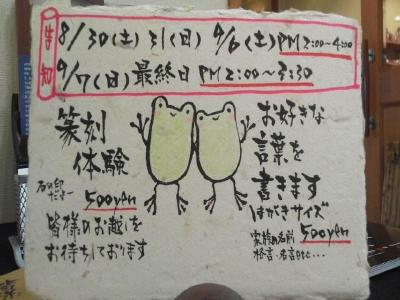 告知
8/30(土) 31(日) 9/6(土) PM 2:00～4:00
9/7(日) 最終日 PM 2:00～3:30
篆刻
体験
500yen
皆様のお越しを
お待ちしております
お好きな
言葉を
書きます
はがきサイズ
500yen
家族の名前
格言・名言etc…